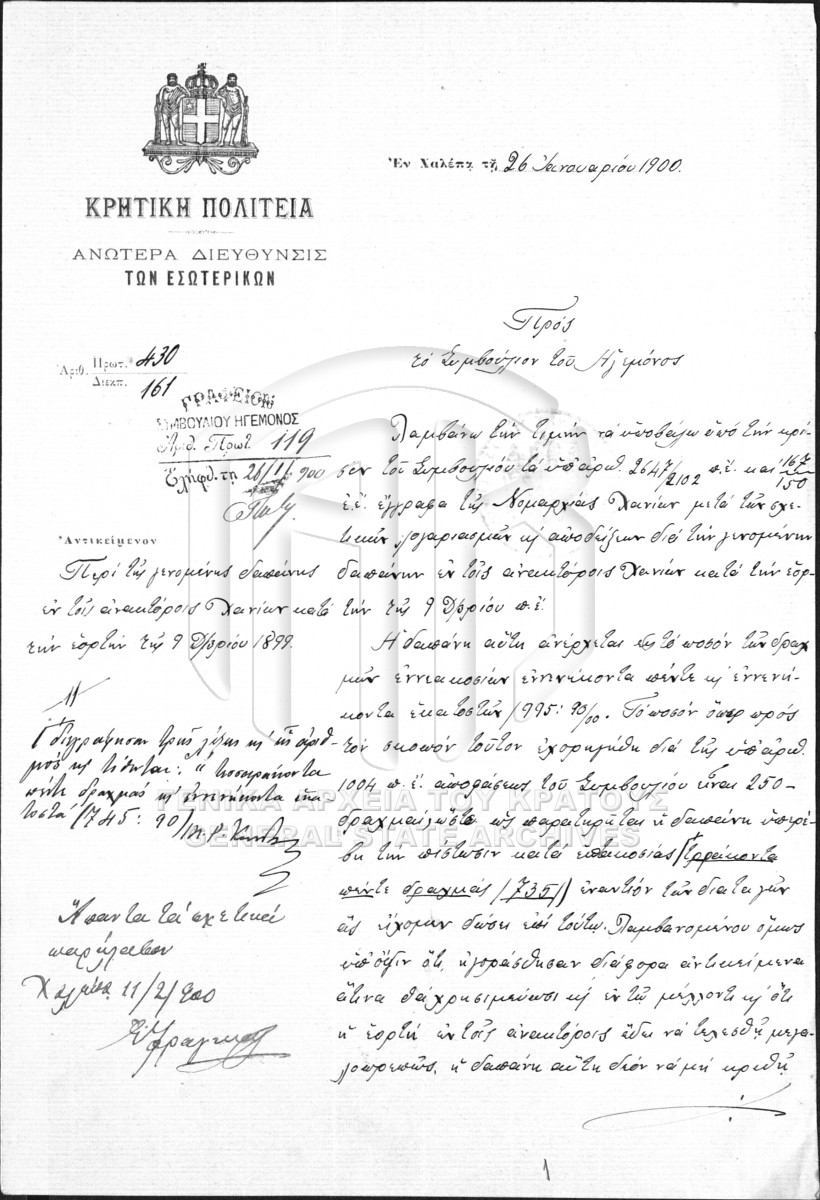 Ἐν Χαλέπᾳ τῇ 26 Ἰανουαρίου 1900.
ΚΡΗΤΙΚΗ ΠΟΛΙΤΕΙΑ
ΑΝΩΤΕΡΑ ΔΙΕΥΘΥΝΣΙΣ
ΤΩΝ ΕΣΩΤΕΡΙΚΩΝ
Πρὸς
τὸ Συμβούλιον τοῦ Ἡγεμόνος
Ἀριθ. Πρωτ. 430
Διεκπ. 161
ΓΡΑΦΕΙΟΝ
ΣΥΜΒΟΥΛΙΟΥ ΗΓΕΜΟΝΟΣ
Ἀριθ. Πρωτ. 119
Ἐλήφθ. τῇ 26/1/900
Ἀντικείμενον
Περὶ τῆς γενομένης δαπάνης
ἐν τοῖς ἀνακτόροις Χανίων κατὰ
τὴν ἑορτὴν τῆς 9 Δ/βρίου 1899.
Λαμβάνω τὴν τιμὴν νὰ ὑποβάλω ὑπὸ τὴν κρί-
σιν τοῦ Συμβουλίου τὰ ὑπ' ἀριθ. 2647/2102 π.ἔ. καὶ 167/150
ἐ.ἔ. ἔγγραφα τῆς Νομαρχίας Χανίων μετὰ τῶν σχε-
τικῶν λογαριασμῶν κ' ἀποδείξεων διὰ τὴν γενομένην
δαπάνην ἐν τοῖς ἀνακτόροις Χανίων κατὰ τὴν ἑορ-
τὴν τῆς 9 Δ/βρίου π.ἔ.
Ἡ δαπάνη αὕτη ἀνέρχεται εἰς τὸ ποσὸν τῶν δραχ-
μῶν ἐννεακοσίων ἐννενήκοντα πέντε κ' ἐννενή-
κοντα ἑκατοστῶν (995: 90/00. Τὸ ποσὸν ὅπερ πρὸς
τὸν σκοπὸν τοῦτον ἐχορηγήθη διὰ τῆς ὑπ' ἀριθ.
1004 π.ἔ. ἀποφάσεως τοῦ Συμβουλίου εἶναι 250
δραχμαὶ, ὥστε ὡς παρατηρεῖται ἡ δαπάνη ὑπερέ-
βη τὴν πίστωσιν κατὰ ἑπτακοσίας τριάκοντα
πέντε δραχμάς (735) ἐναντίον τῶν διαταγῶν
ἃς εἴχομεν δώσει ἐπὶ τούτῳ. Λαμβανομένου ὅμως
ὑπ' ὄψιν ὅτι ἠγοράσθησαν διάφορα ἀντικείμενα
ἅτινα θὰ χρησιμεύσωσι κ' ἐν τῷ μέλλοντι κ' ὅτι
ἡ ἑορτὴ ἐν τοῖς ἀνακτόροις ἔδει νὰ τελεσθῇ μεγα-
λοπρεπῶς, ἡ δαπάνη αὕτη δέον νὰ μὴ κριθῇ
διεγράφησαν τρεῖς λέξεις κ' εἷς ἀριθ-
μὸς κ' τίθεται: "τεσσαράκοντα
πέντε δραχμάς κ' ἐννενήκοντα ἑκα-
τοστά (745: 90)
Ἅπαντα τὰ σχετικὰ
παρέλαβον
Χαλέπα 11/2/900
ΓΕΝΙΚΑ ΑΡΧΕΙΑ ΤΟΥ ΚΡΑΤΟΥΣ
GENERAL STATE ARCHIVES
1